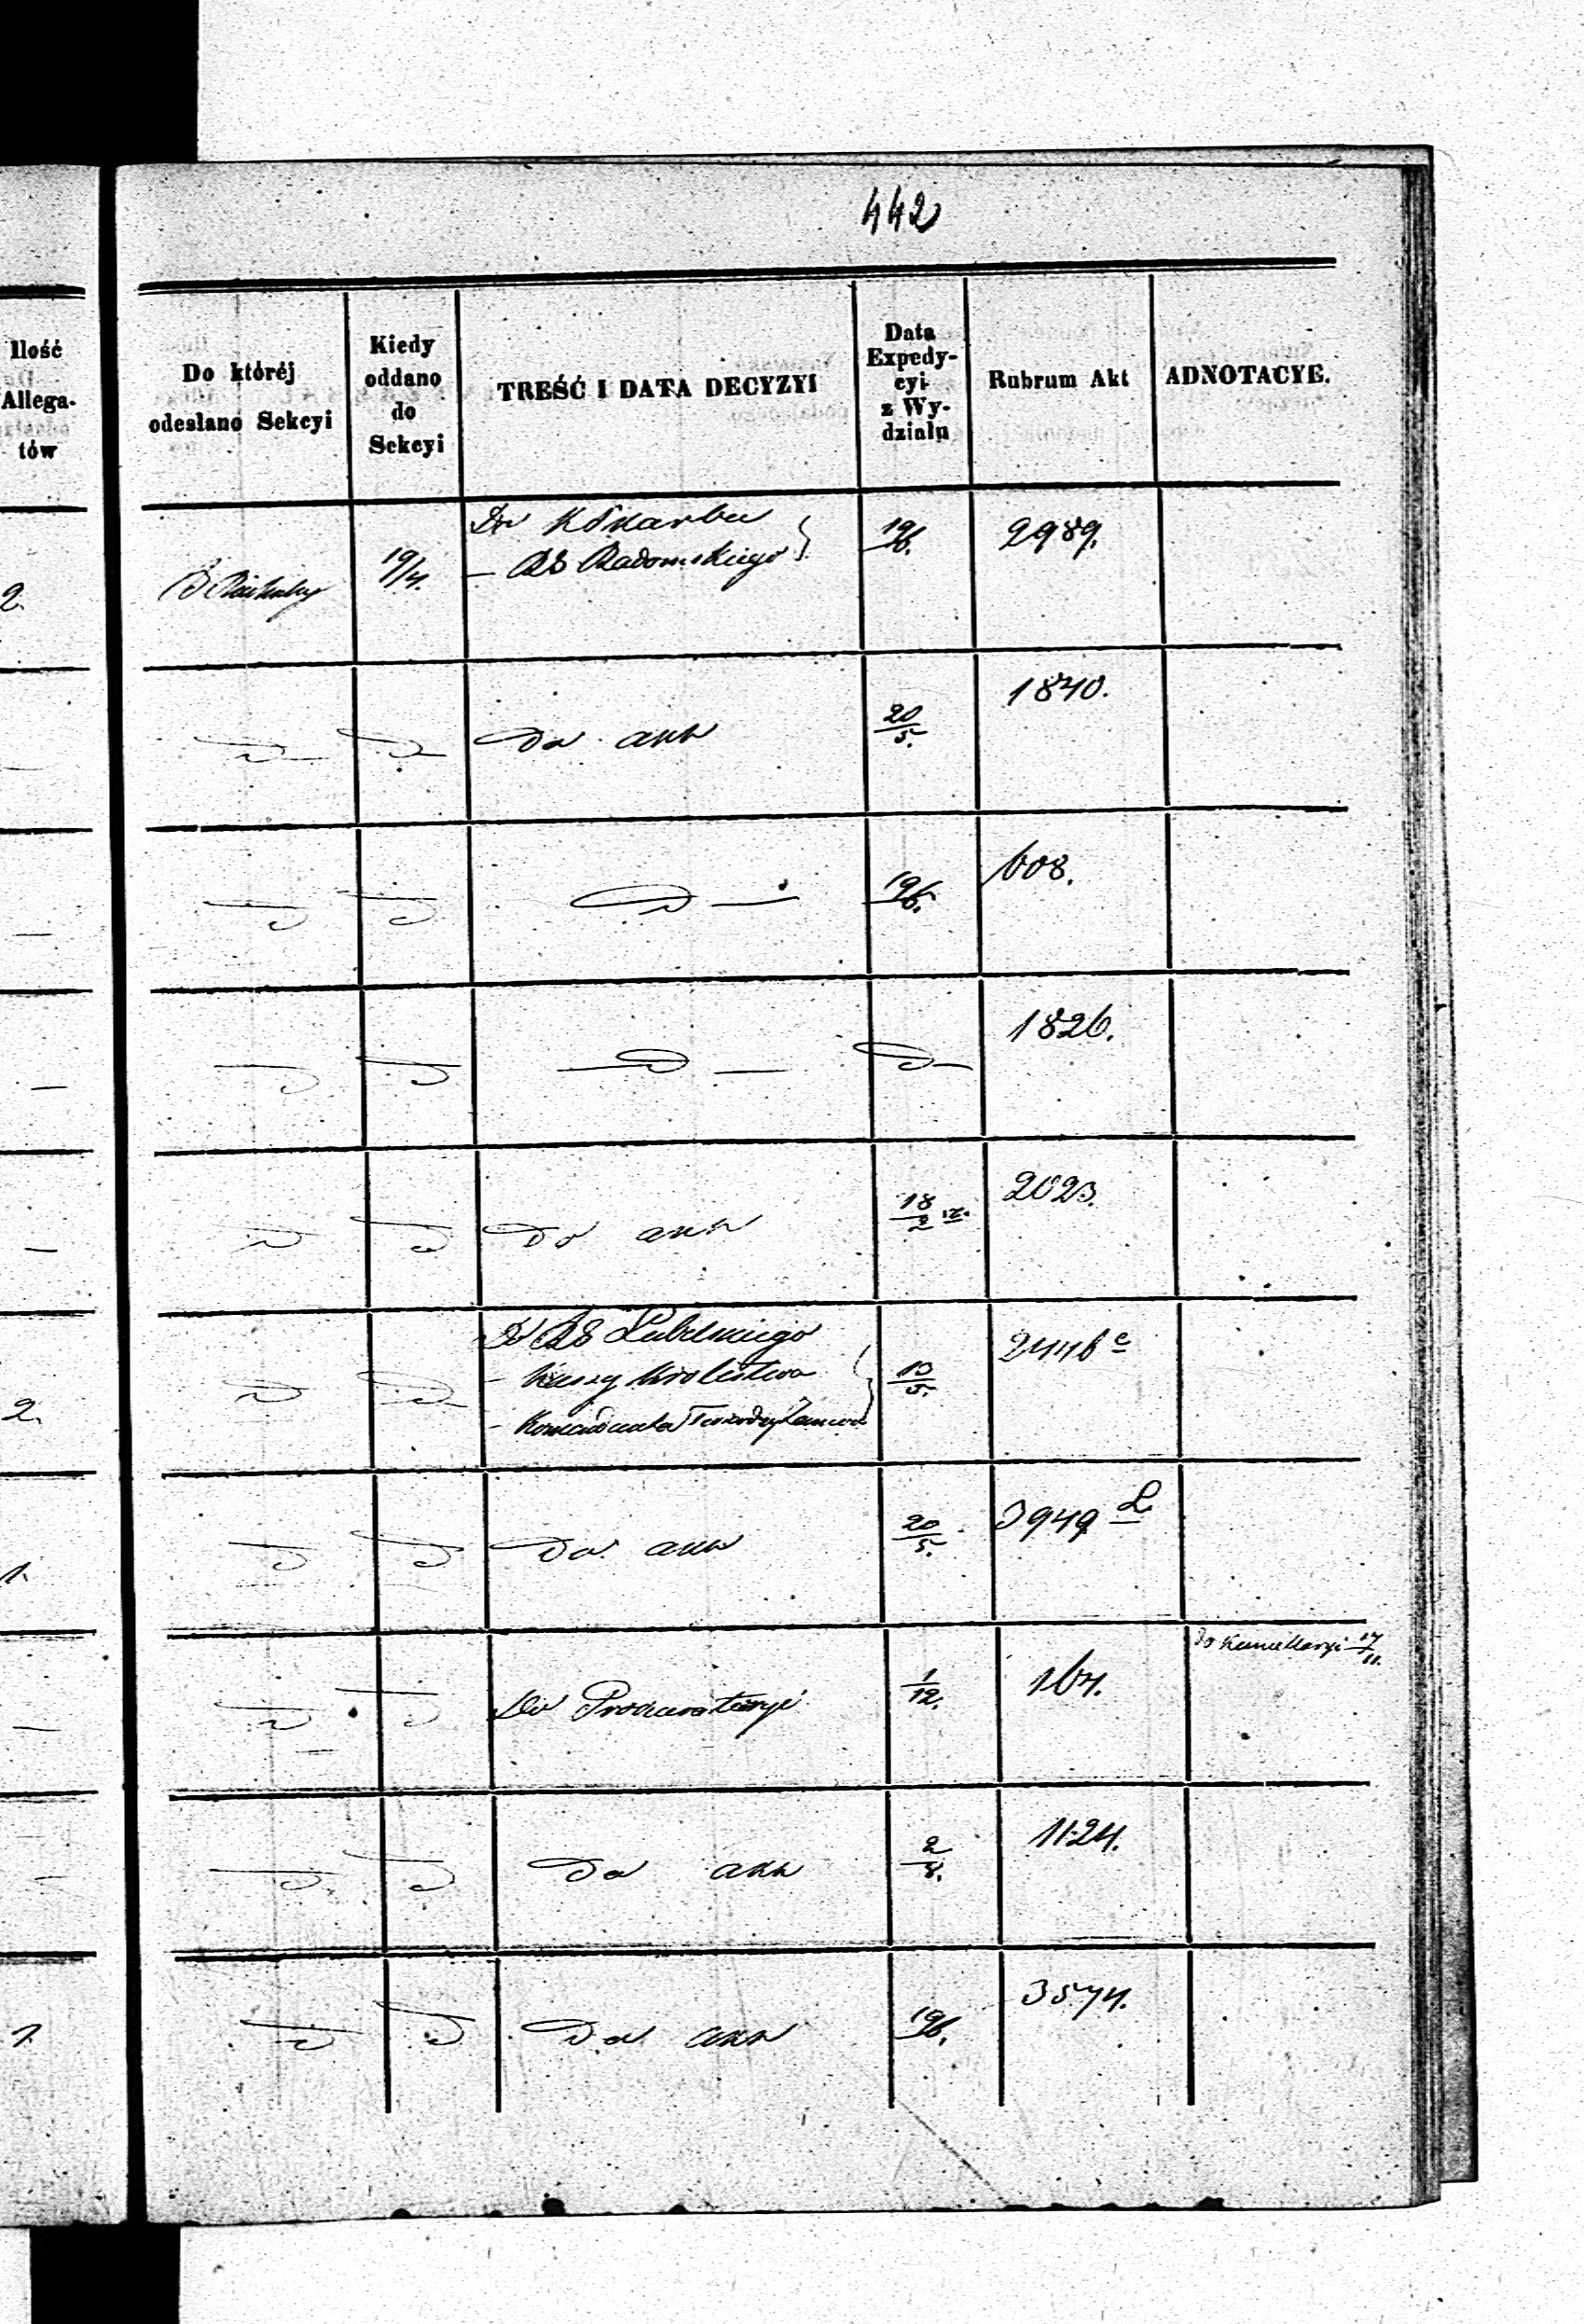 442
Ilość
Allega-
tów
Do któréj
odesłano Sekcyi
Kiedy
oddano
do
Sekcyi
TREŚĆ I DATA DECYZYI
Data
Expedy-
cyi
z Wy-
działu
Rubrum Akt
ADNOTACYE.
2.
19/4.
Do KSkarbu
— RG Radomskiego
19/6.
2989.
Do akt
20/5.
1840.
19/6.
608.
1826.
Do akt
18/2
2023.
2.
Do RG Lubelskiego
- Kassy Królestwa
- Komendanta Twierdzy
13/5.
2446 c
1.
Do akt
20/5.
3949 L.
Do Prokuratoryi
1/12.
164.
Do Kancellaryi 17/11.
Do akt
2/8.
1124.
1.
Do akt
19/6.
3574.